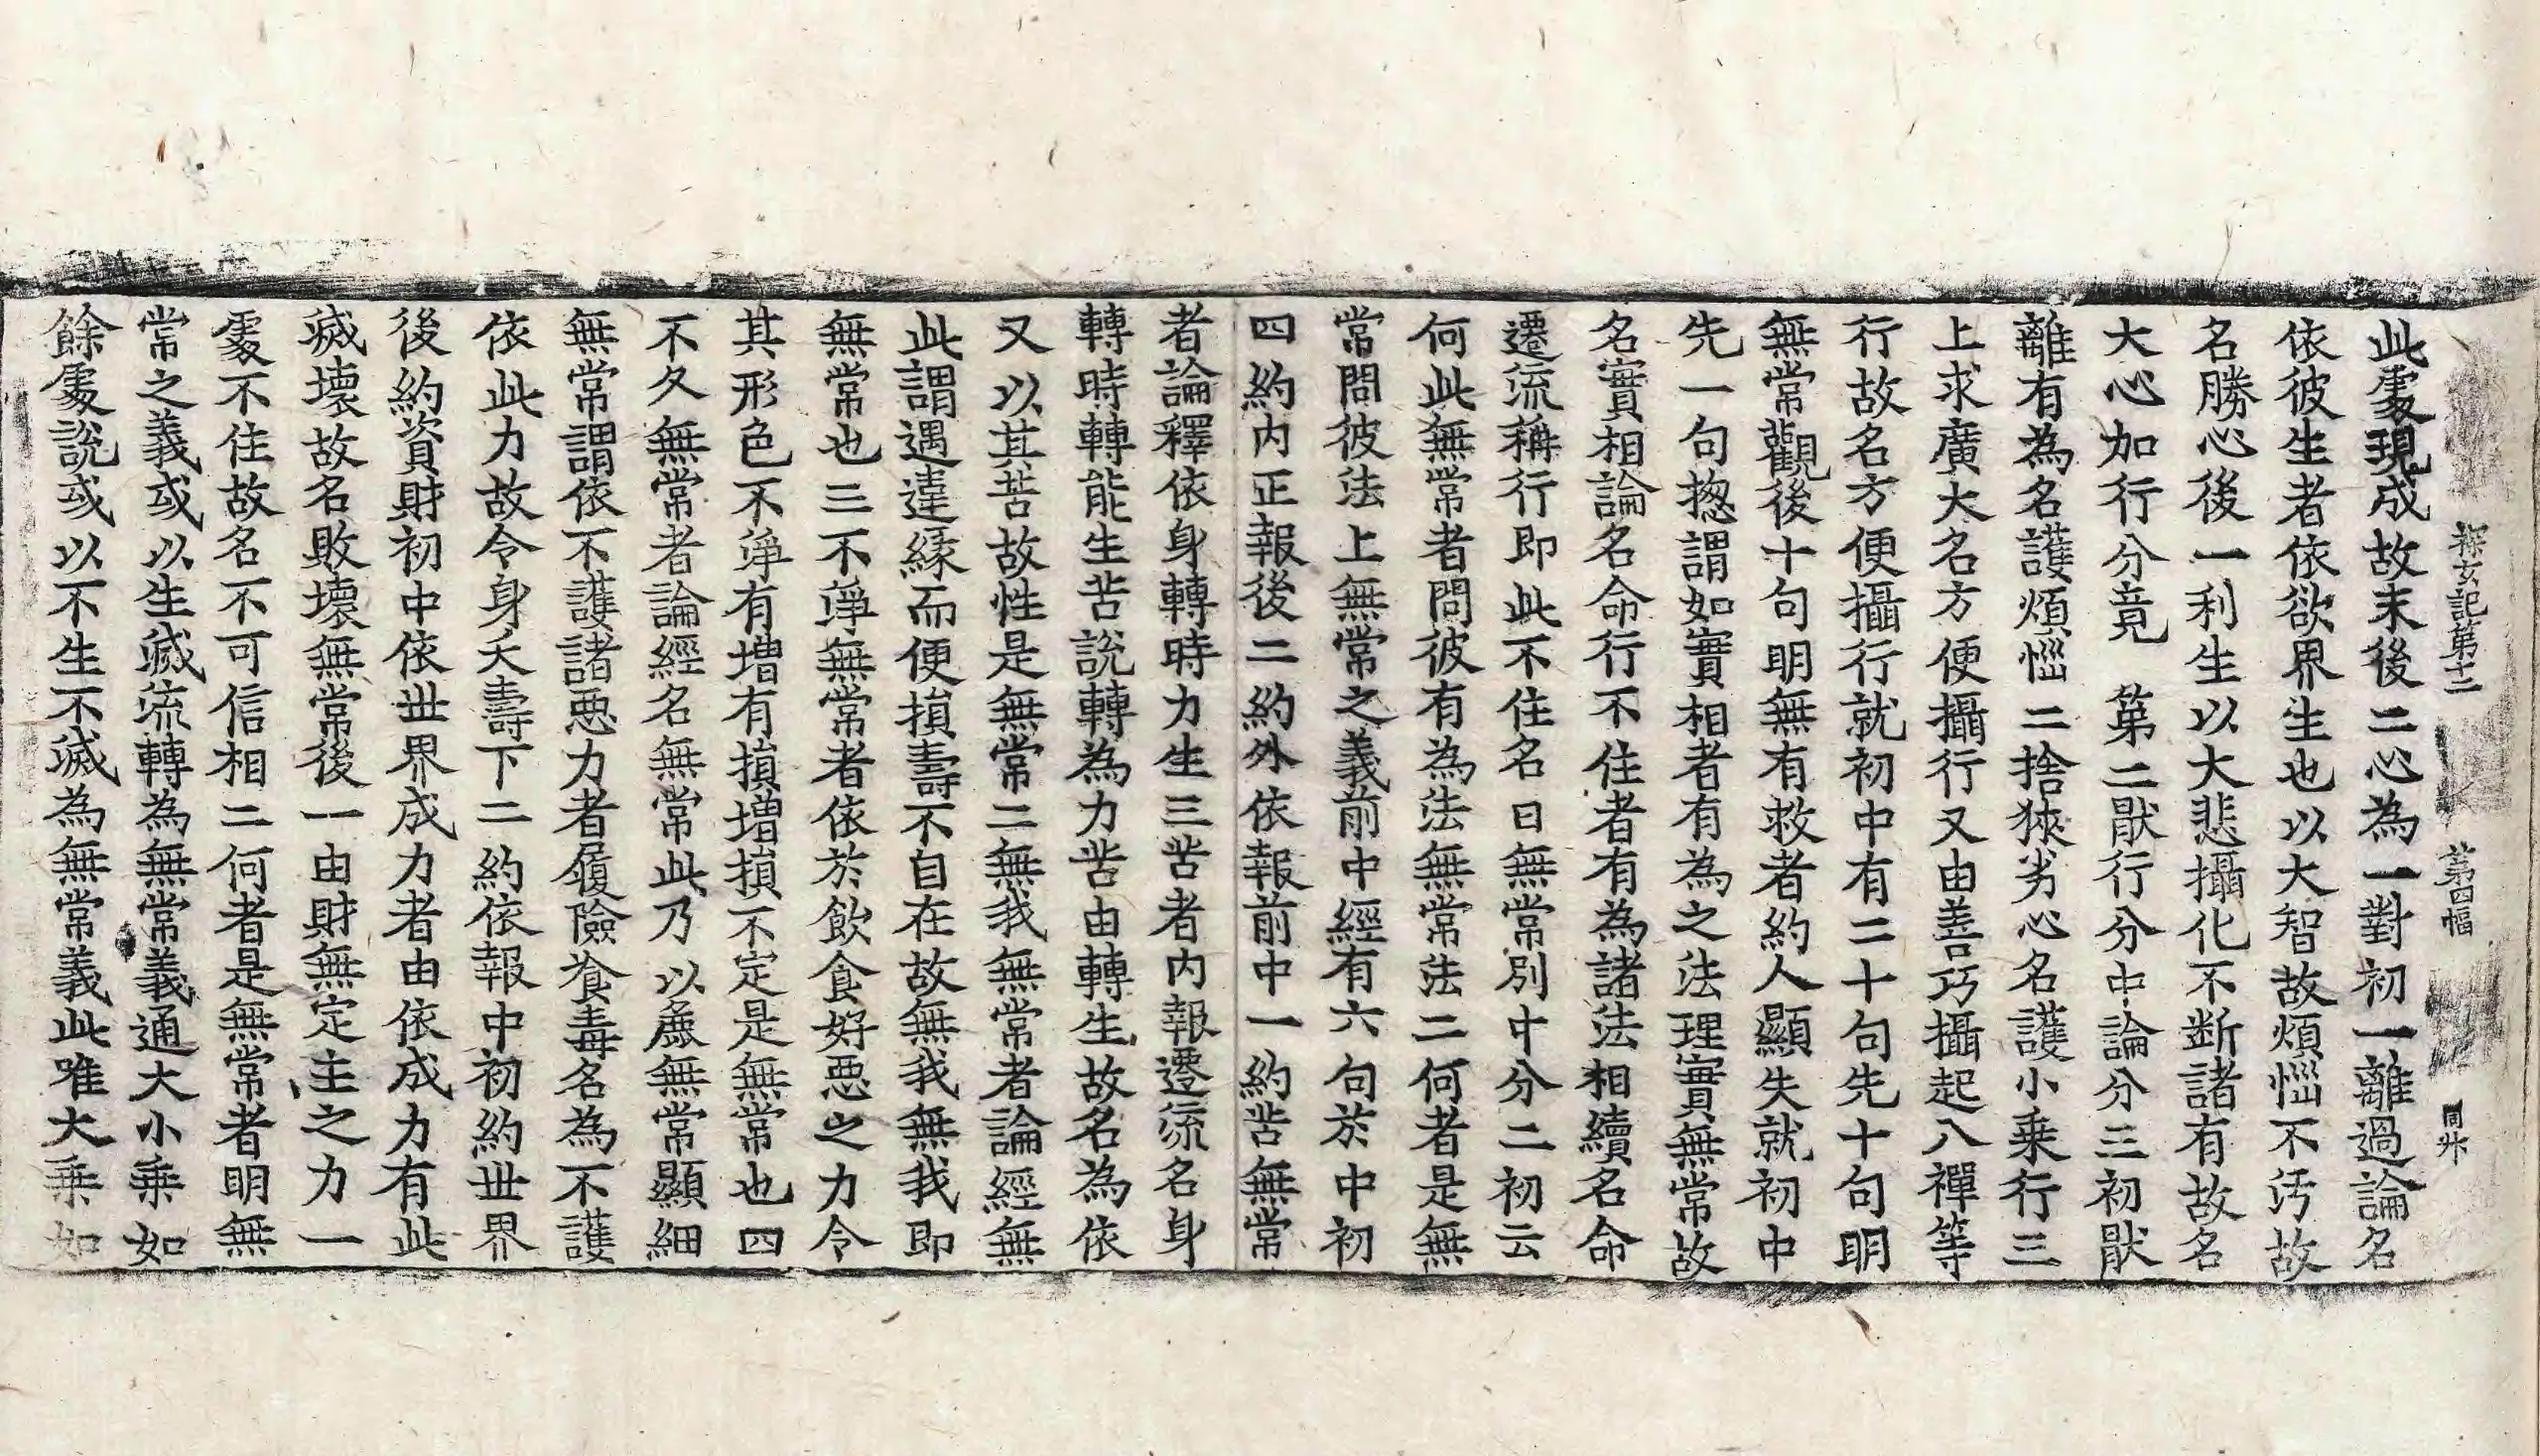 探玄記第十二 第四幅 同卅
此䖏現成故末後二心為一對初一離過論名
依彼生者依欲界生也以大智故煩惱不汚故
名勝心後一利生以大悲攝化不断諸有故名
大心加行分竟 第二猒行分中論分三初猒
離有為名護煩惱二捨狹劣心名護小乗行三
上求廣大名方便攝行又由善巧攝起八禪等
行故名方便攝行就初中有二十句先十句明
無常觀後十句明無有救者約人顯失就初中
先一句揔謂如實相者有為之法理實無常故
名實相論名命行不住者有為諸法相續名命
遷流稱行即此不住名曰無常別中分二初云
何此無常者問彼有為法無常法二何者是無
常問彼法上無常之義前中經有六句於中初
四約内正報後二約外依報前中一約苦無常
者論釋依身轉時力生三苦者内報遷流名身
轉時轉能生苦說轉為力苦由轉生故名為依
又以其苦故性是無常二無我無常者論經無
此謂遇違緣而便損壽不自在故無我無我即
無常也三不淨無常者依於飲食好惡之力令
其形色不淨有增有損增損不定是無常也四
不久無常者論經名無常此乃以麁無常顯細
無常謂依不護諸惡力者履險飡毒名為不護
依此力故令身夭壽下二約依報中初約世界
後約資財初中依世界成力者由依成力有此
滅壞故名敗壞無常後一由財無定主之力一
䖏不住故名不可信相二何者是無常者明無
常之義或以生滅流轉為無常義通大小乗如
餘䖏説或以不生不滅為無常義此唯大乗如